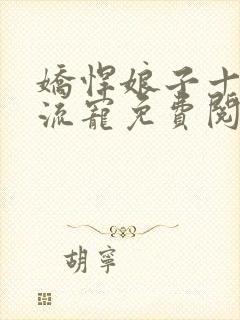 嬌悍娘子十
流寵免費閱
胡寧